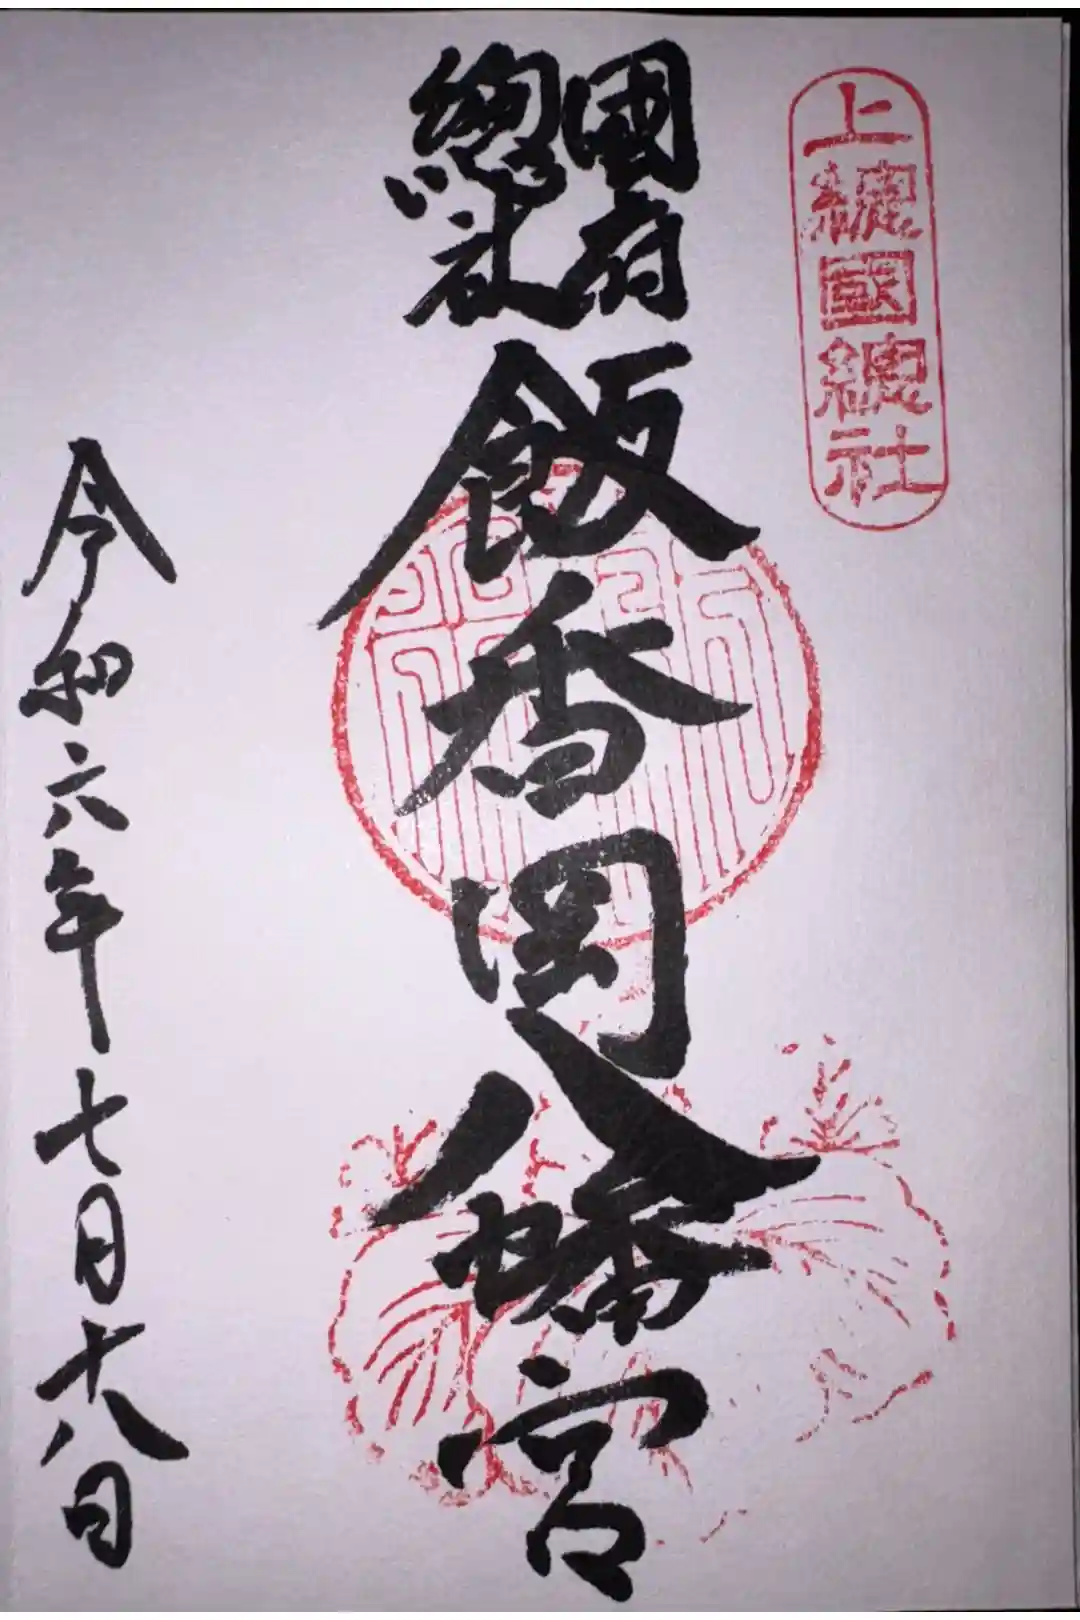 上總國總社
國府
總社
飯香岡八幡宮
令和六年七月十八日